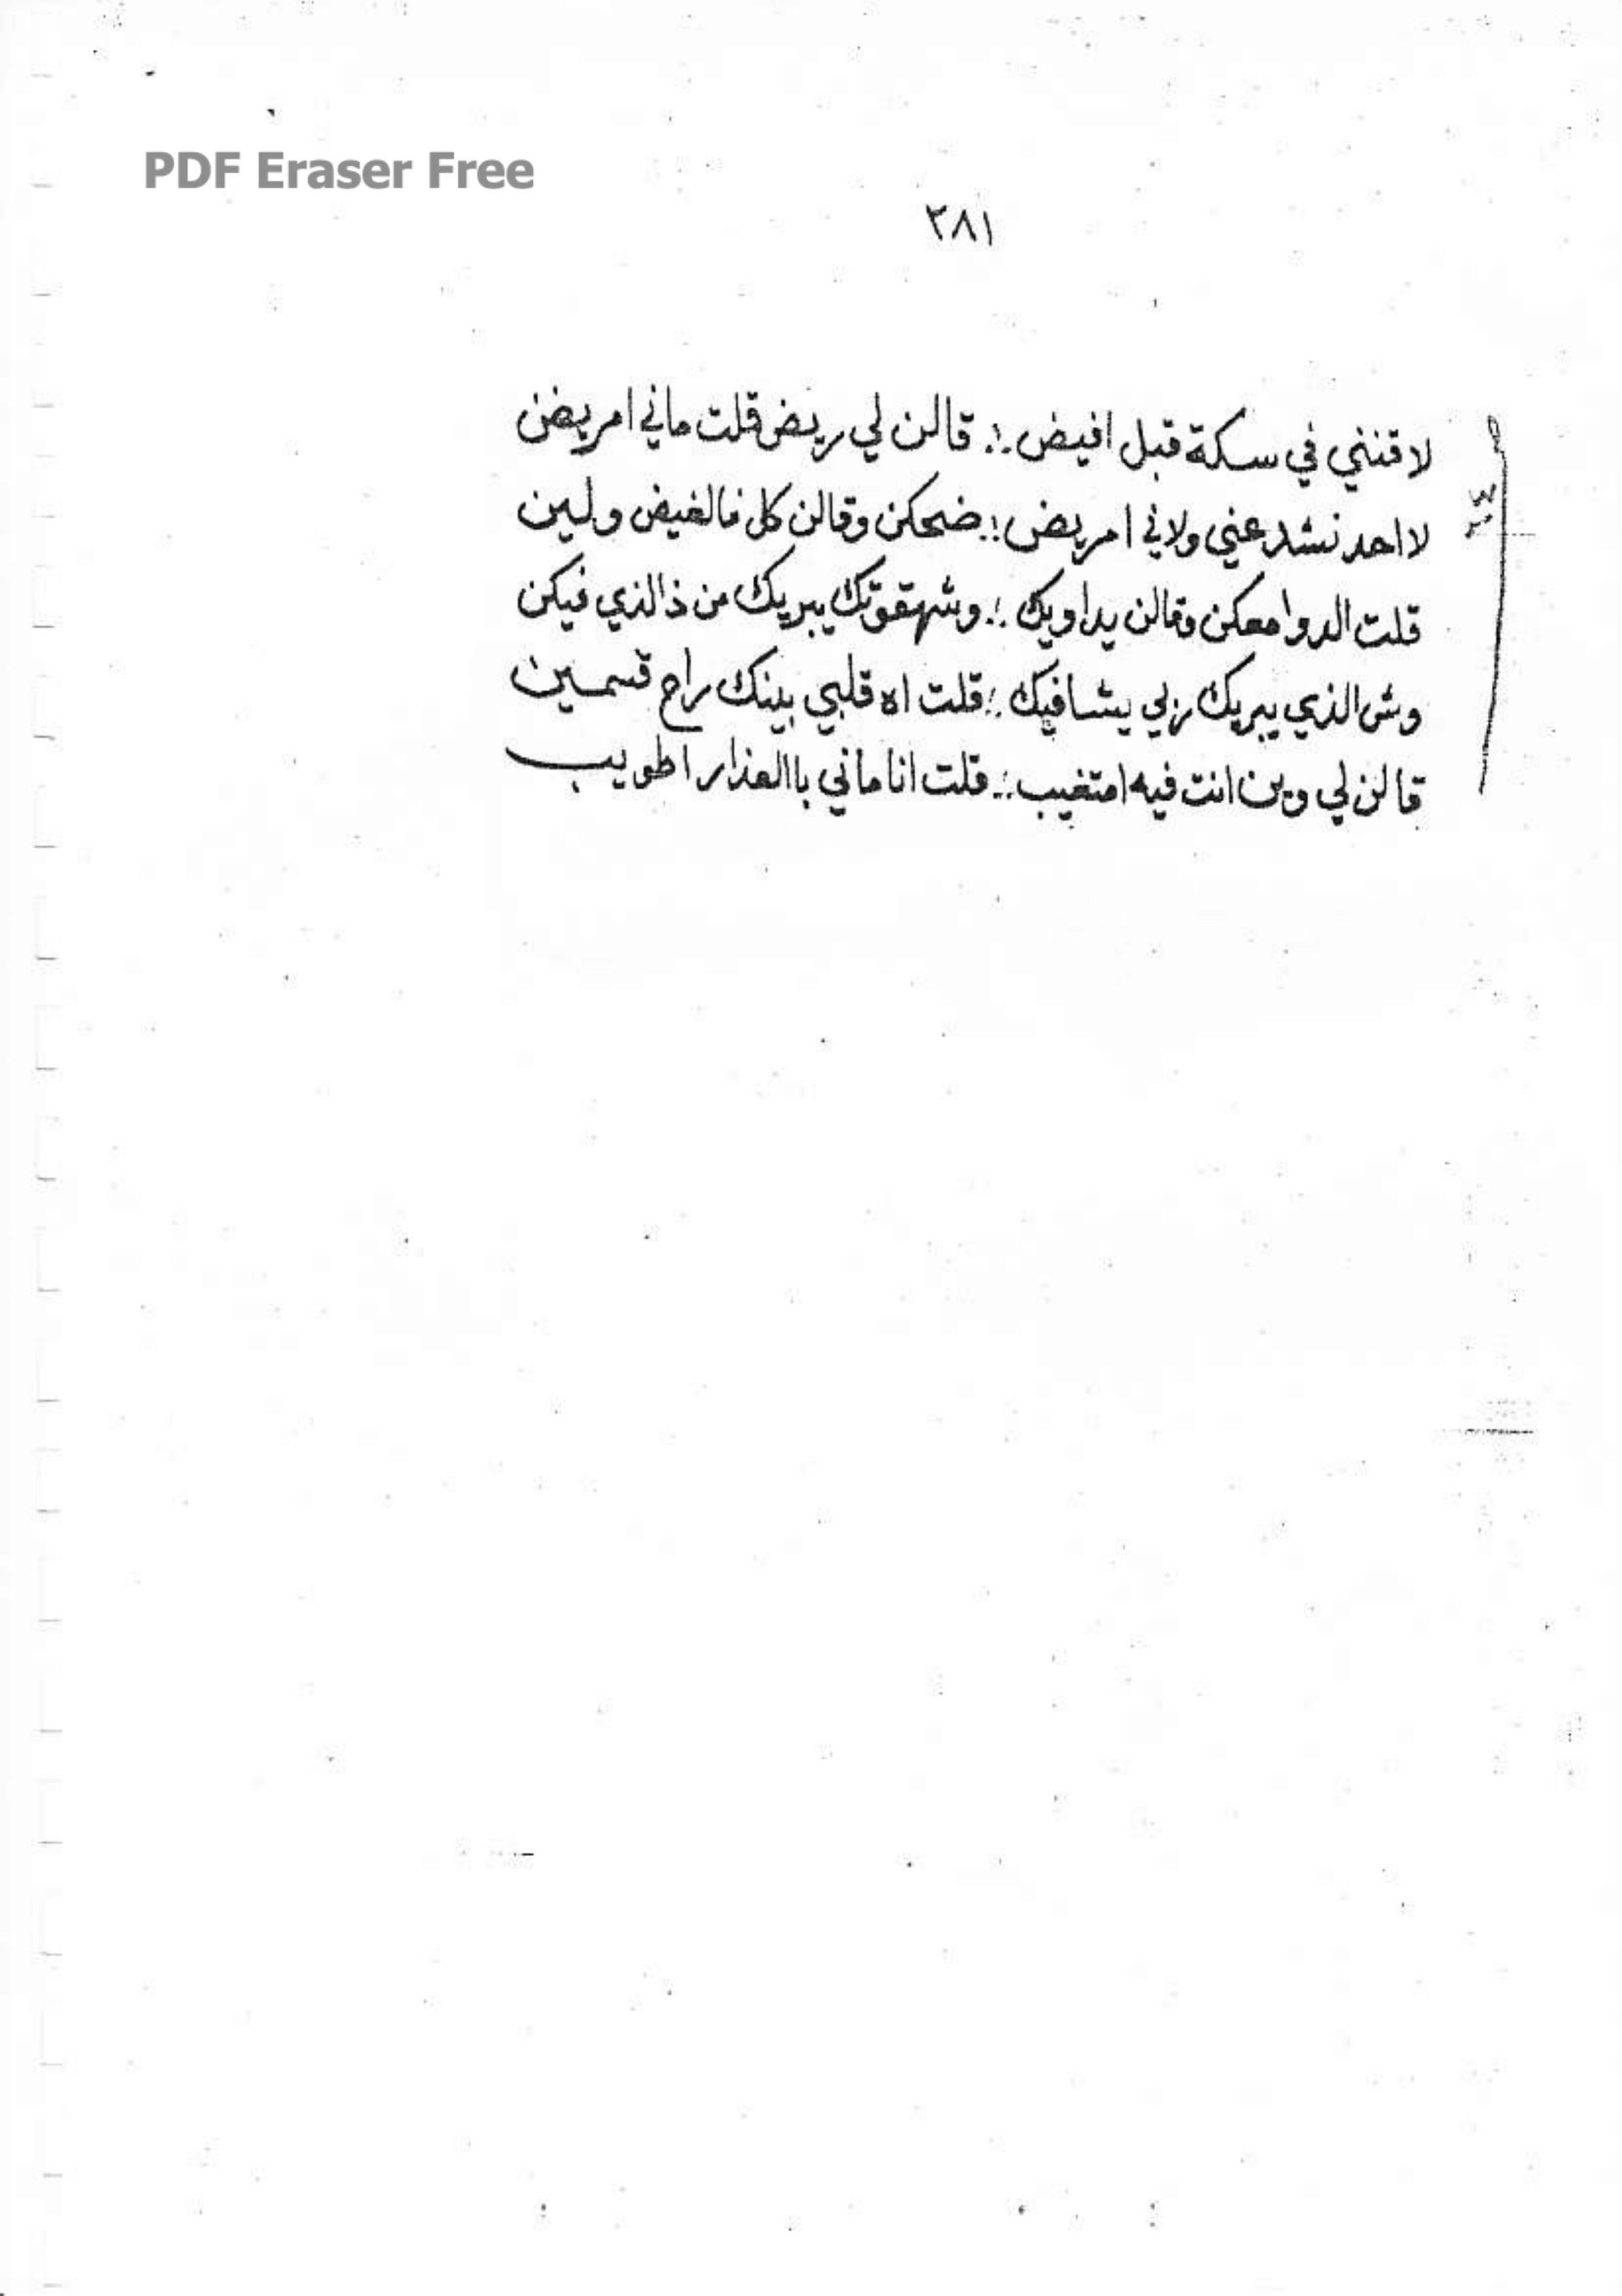 PDF Eraser Free
٢٨١
لاقنني في سكة قبل افيض .:. قالن لي ريض قلت ماني امريضن
لا احد نشد عني ولاني امريض .:. ضحكن وقالن كل فالغيض ولين
قلت الدوا معكن وقالن يداويك .:. وشهقوتك يبريك من ذالذي فيكن
وش الذي يبريك ربي يشافيك .:. قلت اه قلبي بينك راح قسمين
قالن لي وين انت فيه امتغيب .:. قلت انا ماني باالعذار اطويب